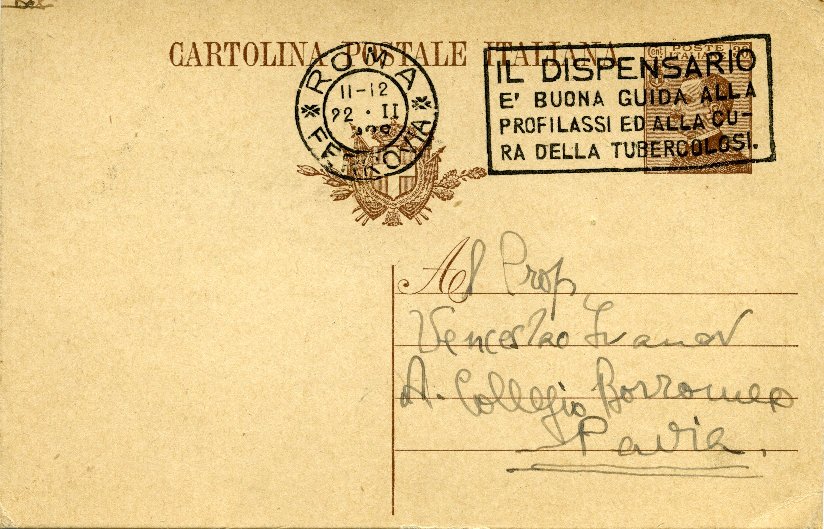 CARTOLINA POSTALE ITALIANA
ROMA
FERROVIA
11-12
22 · II
IL DISPENSARIO
E' BUONA GUIDA ALLA
PROFILASSI ED ALLA CU-
RA DELLA TUBERCOLOSI.
POSTE
ITALIANE
Al Prof.
Venceslao Ivanov
A. Collegio Borromeo
Pavia.